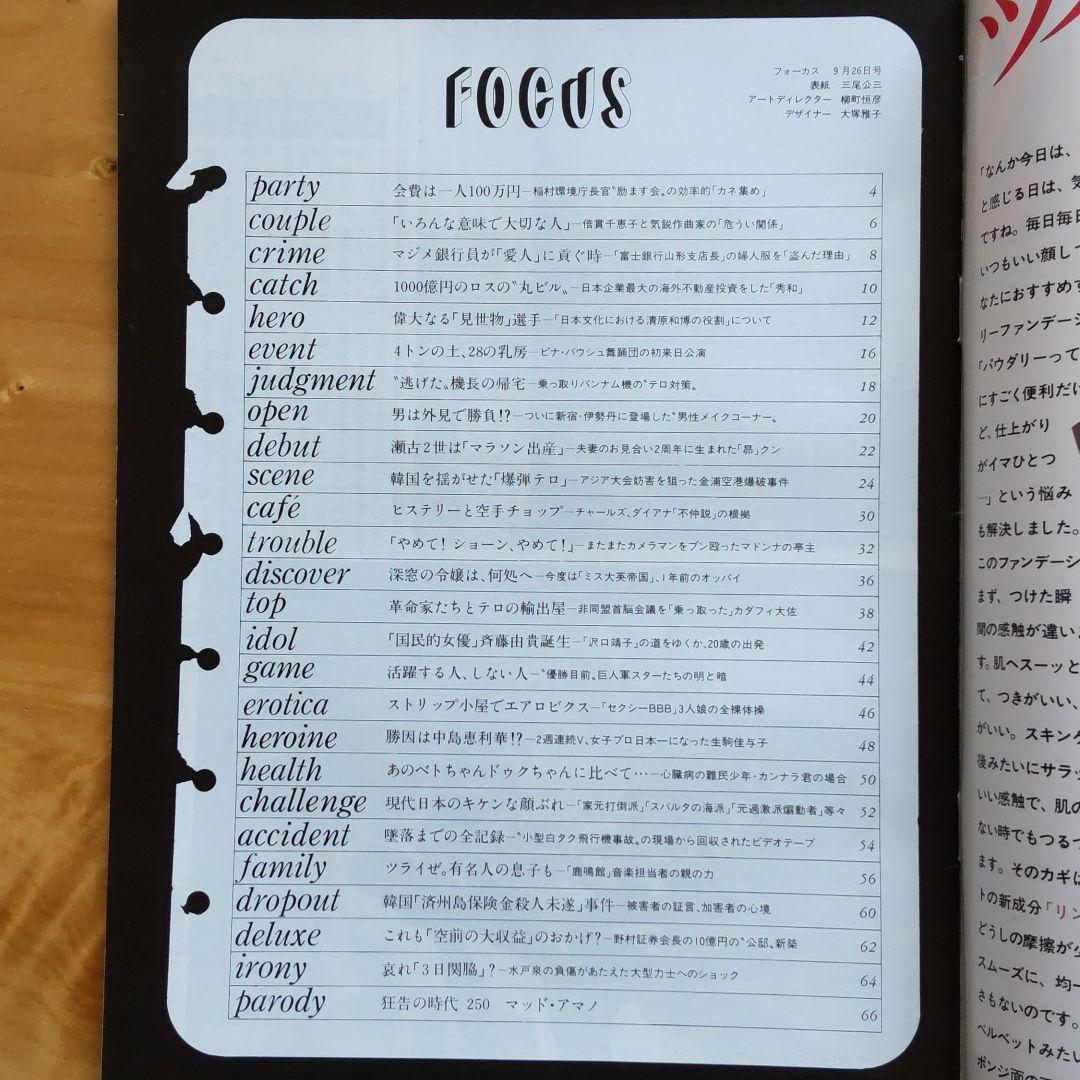 FOCUS
フォーカス 9月26日号
表紙 三尾公三
アートディレクター 柳町恒彦
デザイナー 大塚雅子
party 会費は一人100万円―稲村環境庁長官〝励ます会〟の効率的「カネ集め」 4
couple 「いろんな意味で大切な人」―倍賞千恵子と気鋭作曲家の「危うい関係」 6
crime マジメ銀行員が「愛人」に貢ぐ時―「富士銀行山形支店長」の婦人服を「盗んだ理由」 8
catch 1000億円のロスの〝丸ビル〟―日本企業最大の海外不動産投資をした「秀和」 10
hero 偉大なる「見世物」選手―「日本文化における清原和博の役割」について 12
event 4トンの土、28の乳房―ピナ・バウシュ舞踊団の初来日公演 16
judgment 〝逃げた〟機長の帰宅―乗っ取りパンナム機の〝テロ対策〟 18
open 男は外見で勝負!?―ついに新宿・伊勢丹に登場した〝男性メイクコーナー〟 20
debut 瀬古2世は「マラソン出産」―夫妻のお見合い2周年に生まれた「昴」クン 22
scene 韓国を揺がせた「爆弾テロ」―アジア大会妨害を狙った金浦空港爆破事件 24
café ヒステリーと空手チョップ―チャールズ、ダイアナ「不仲説」の根拠 30
trouble 「やめて! ショーン、やめて!」―またまたカメラマンをブン殴ったマドンナの亭主 32
discover 深窓の令嬢は、何処へ―今度は「ミス大英帝国」、1年前のオッパイ 36
top 革命家たちとテロの輸出屋―非同盟首脳会議を「乗っ取った」カダフィ大佐 38
idol 「国民的女優」斉藤由貴誕生―「沢口靖子」の道をゆくか、20歳の出発 42
game 活躍する人、しない人―〝優勝目前〟巨人軍スターたちの明と暗 44
erotica ストリップ小屋でエアロビクス―「セクシーBBB」3人娘の全裸体操 46
heroine 勝因は中島恵利華!?―2週連続V、女子プロ日本一になった生駒佳与子 48
health あのベトちゃんドゥクちゃんに比べて…―心臓病の難民少年・カンナラ君の場合 50
challenge 現代日本のキケンな顔ぶれ―「家元打倒派」「スパルタの海派」「元過激派煽動者」等々 52
accident 墜落までの全記録―〝小型白タク飛行機事故〟の現場から回収されたビデオテープ 54
family ツライぜ。有名人の息子も―「鹿鳴館」音楽担当者の親の力 56
dropout 韓国「済州島保険金殺人未遂」事件―被害者の証言、加害者の心境 60
deluxe これも「空前の大収益」のおかげ?―野村証券会長の10億円の〝公邸〟新築 62
irony 哀れ「3日関脇」?―水戸泉の負傷があたえた大型力士へのショック 64
parody 狂告の時代 250 マッド・アマノ 66
「なんか今日は、
と感じる日は、気
ですね。毎日毎日
いつもいい顔して
なたにおすすめす
リーファンデーシ
「パウダリーって
にすごく便利だけ
ど、仕上がり
がイマひとつ
…」という悩み
も解決しました。
このファンデーシ
まず、つけた瞬
間の感触が違いま
す。肌へスーッと
て、つきがいい、
がいい。スキンケ
後みたいにサラッ
いい感触で、肌の
ない時でもつるつ
ます。そのカギは
トの新成分「リン
どうしの摩擦が少
スムーズに、均一
さもないのです。
ベルベットみたい
ポンジ面の